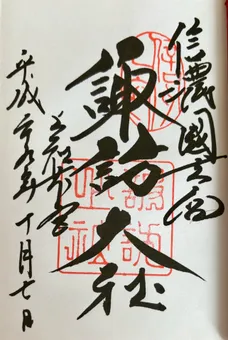 信濃國一之宮
諏訪大社
上社本宮
平成二九年十月七日
諏訪大社